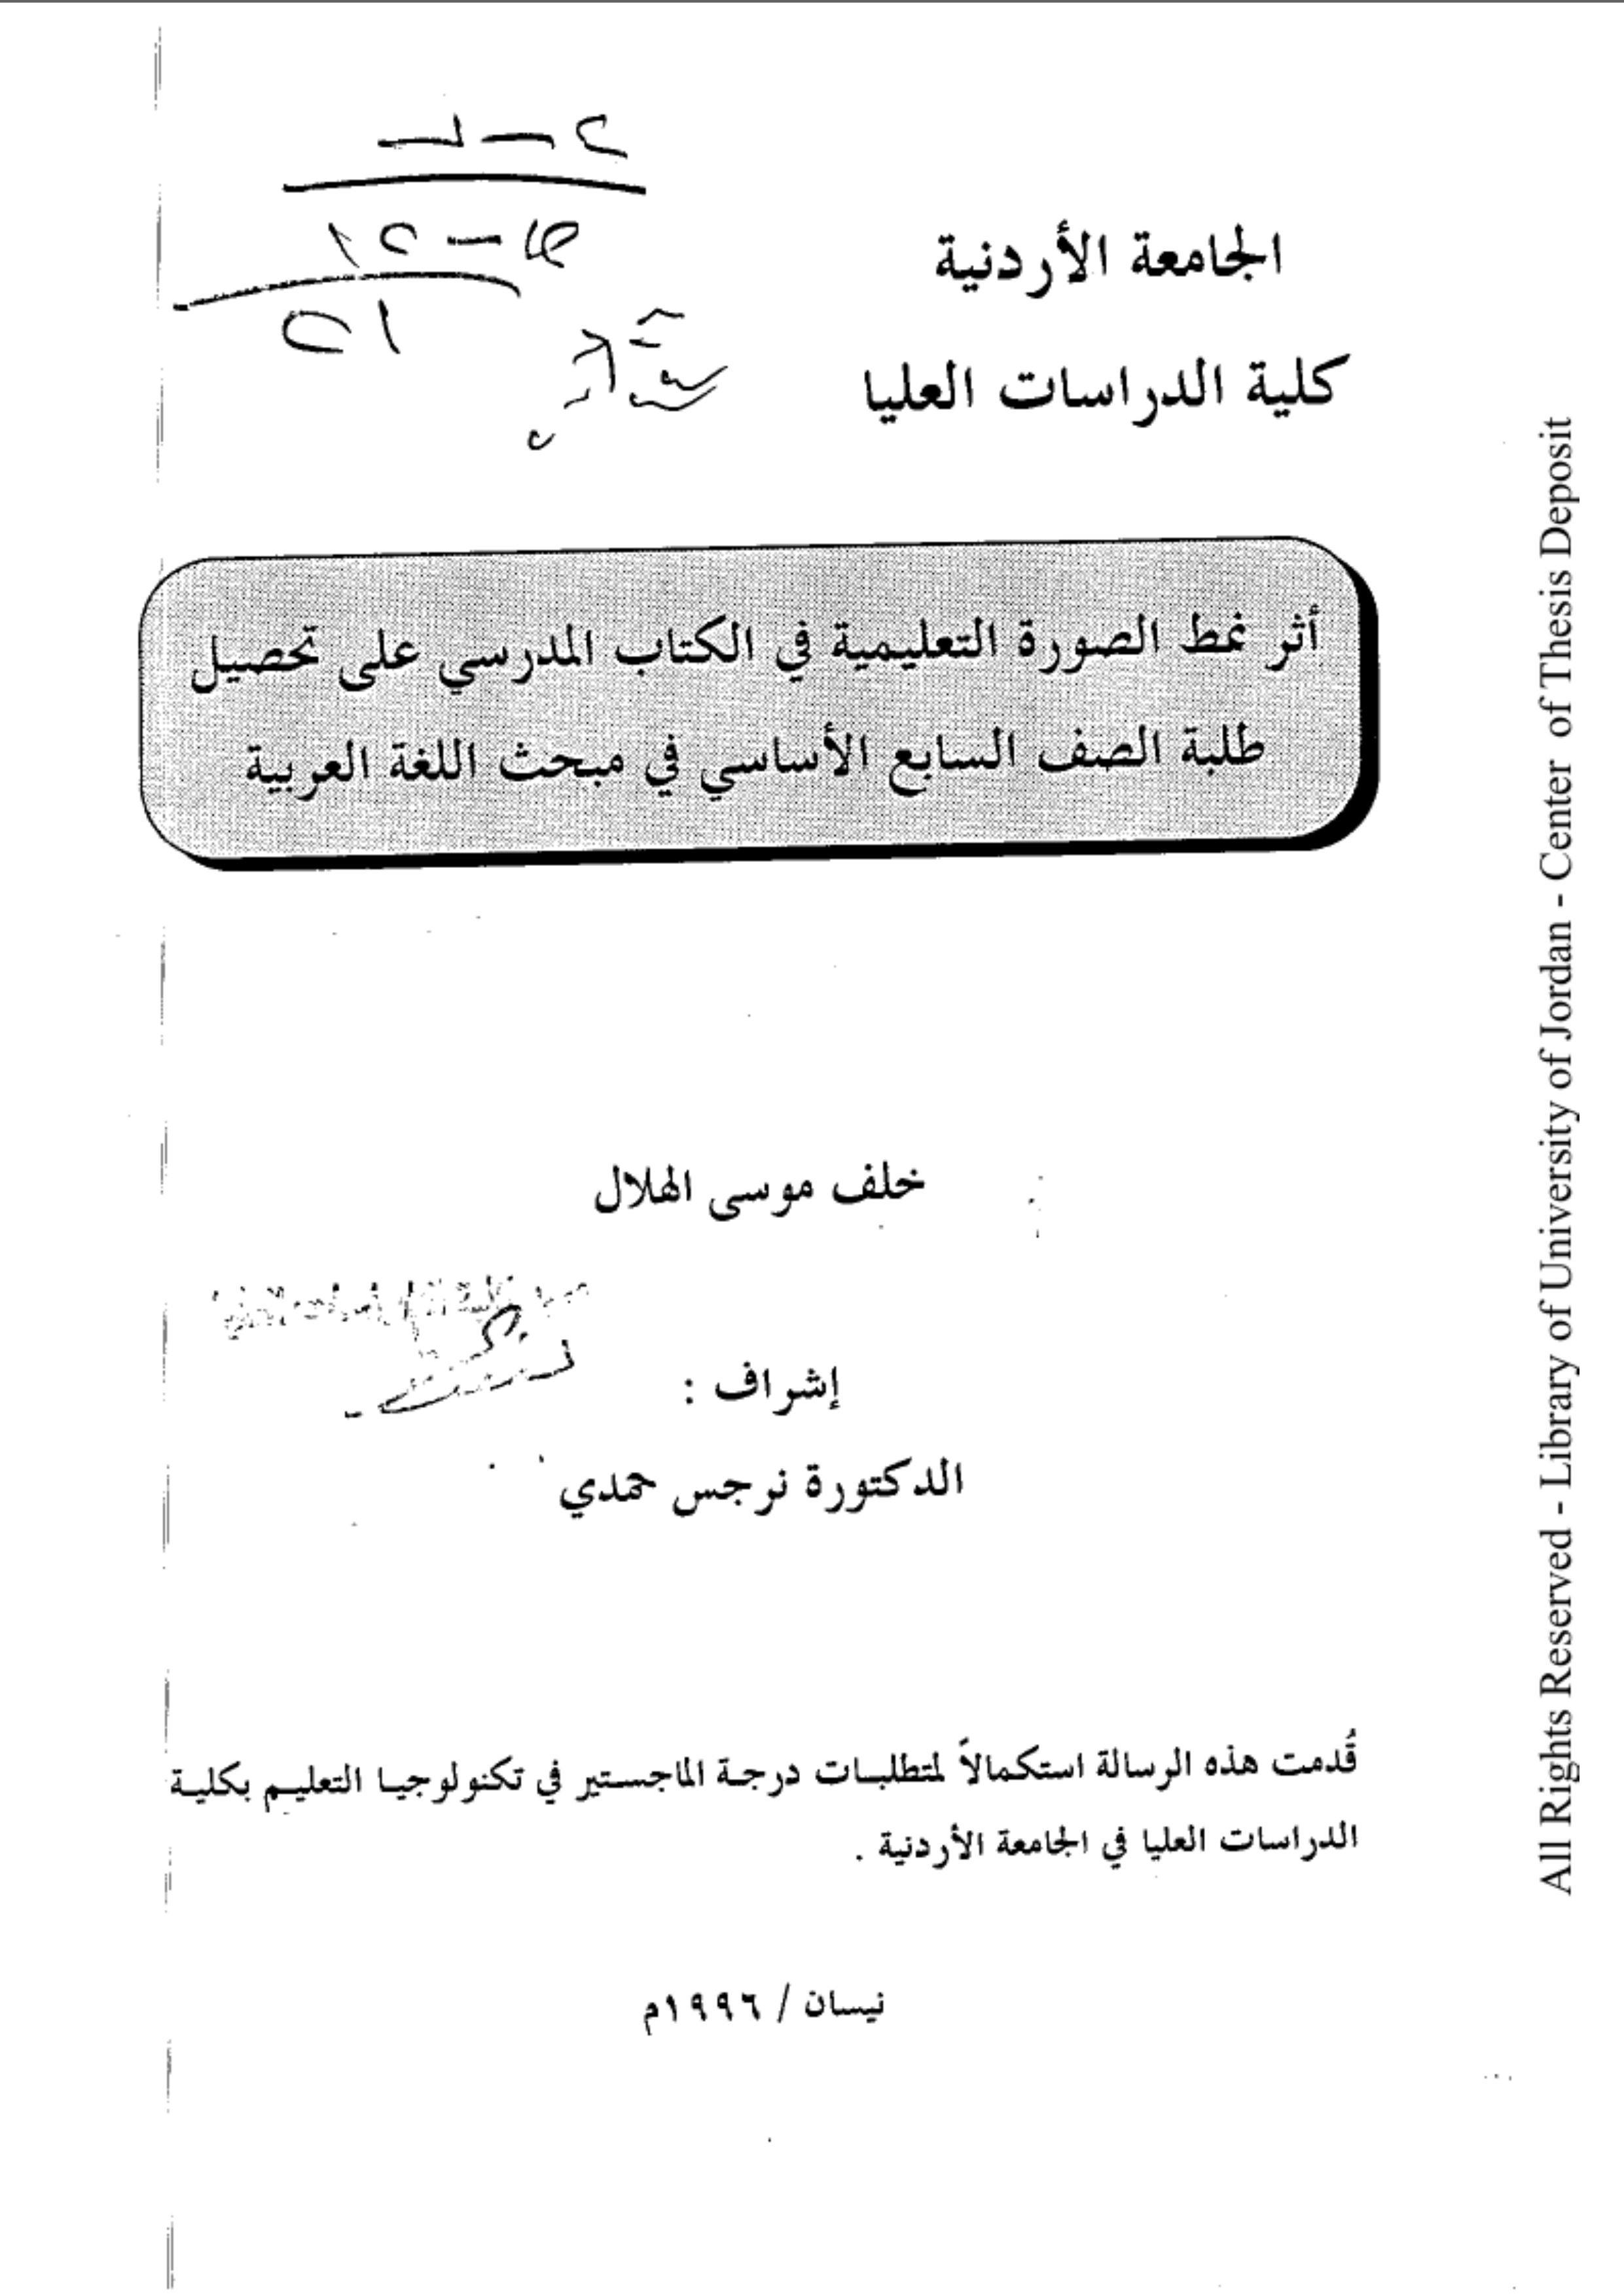 الجامعة الأردنية
كلية الدراسات العليا
أثر نمط الصورة التعليمية في الكتاب المدرسي على تحصيل
طلبة الصف السابع الأساسي في مبحث اللغة العربية
خلف موسى الهلال
إشراف :
الدكتورة نرجس حمدي
قُدمت هذه الرسالة استكمالاً لمتطلبات درجة الماجستير في تكنولوجيا التعليم بكلية
الدراسات العليا في الجامعة الأردنية .
نيسان / ١٩٩٦م
All Rights Reserved - Library of University of Jordan - Center of Thesis Deposit